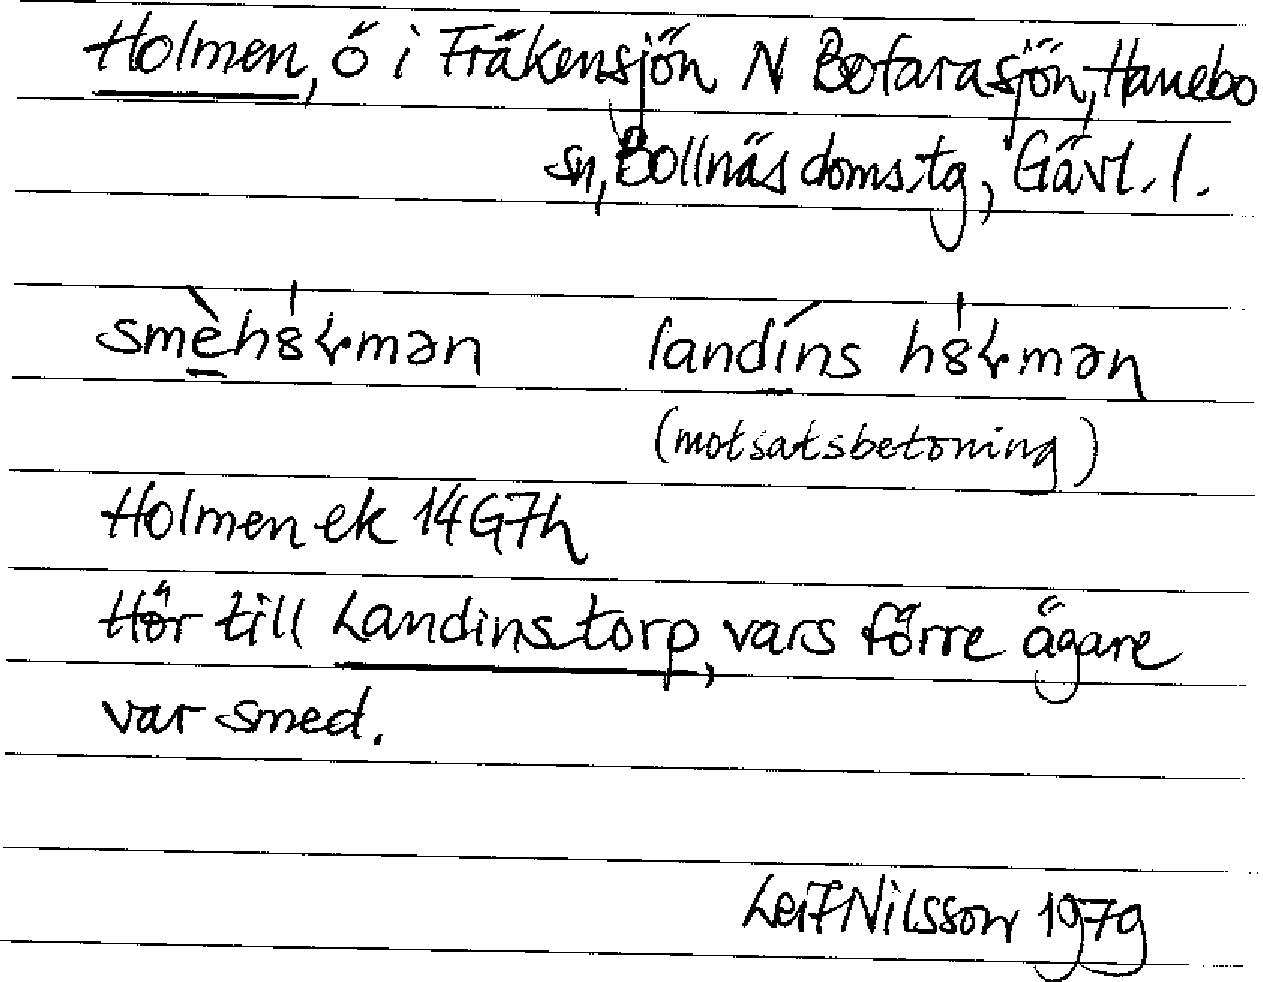 Holmen, ö i Fräkensjön N Bofarasjön, Hanebo
sn, Bollnäs doms.tg, Gävl. l.
landíns
(motsatsbetoning)
Holmen ek 14G7h
Hör till Landinstorp, vars förre ägare
var smed.
Leif Nilsson 1979